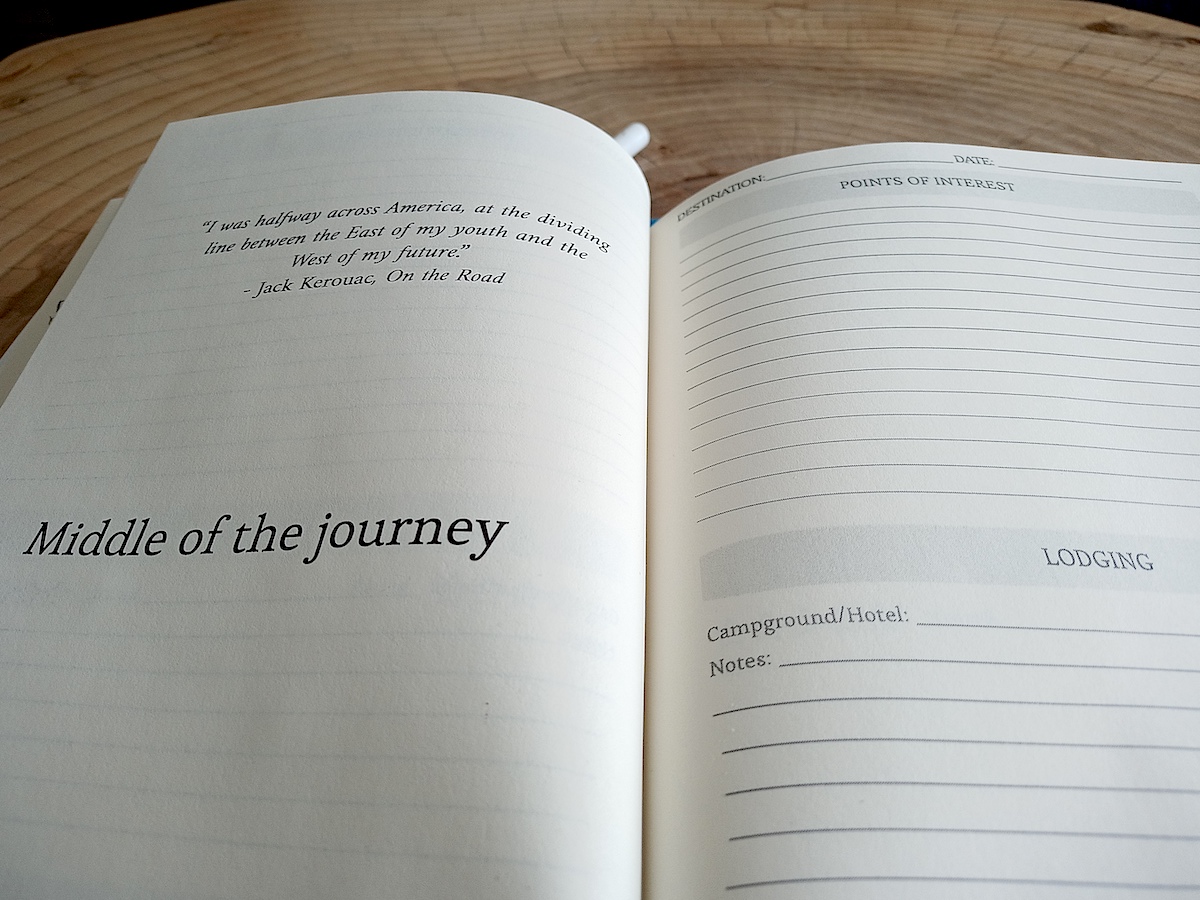 “I was halfway across America, at the dividing
line between the East of my youth and the
West of my future.”
- Jack Kerouac, On the Road
Middle of the journey
DESTINATION: DATE:
POINTS OF INTEREST
LODGING
Campground/Hotel:
Notes: